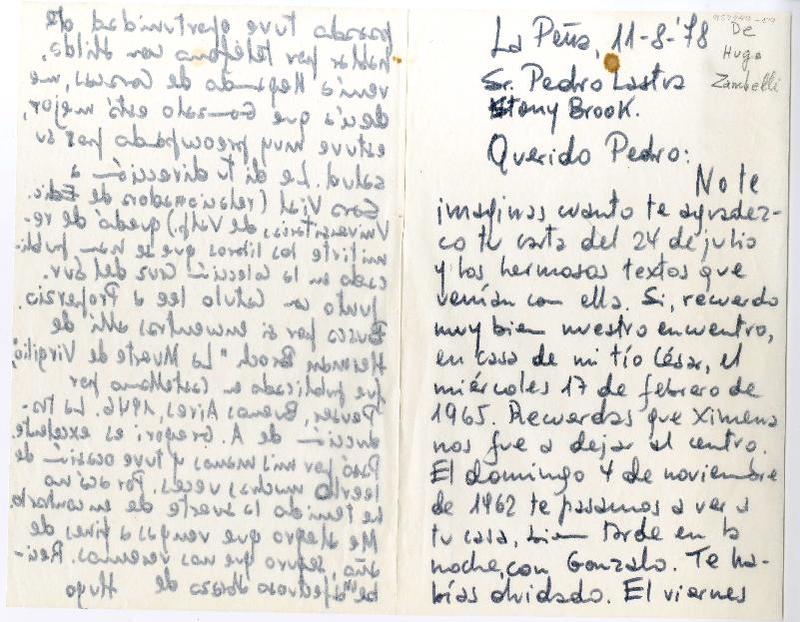 957999-59
De
Hugo
Zambelli
La Peña, 11-8-'78
Sr. Pedro Lastra
Stony Brook.
Querido Pedro:
No te
imaginas cuanto te agradez-
co tu carta del 24 de julio
y los hermosos textos que
venían con ella. Si, recuerdo
muy bien nuestro encuentro,
en casa de mi tío César, el
miércoles 17 de febrero de
1965. Recuerdas que Ximena
nos fue a dejar al centro.
El domingo 4 de noviembre
de 1962 te pasamos a ver a
tu casa, bien tarde en la
noche, con Gonzalo. Te ha-
bías olvidado. El viernes
pasado tuve oportunidad de
hablar por teléfono con Hilda,
venía llegando de Caracas, me
decía que Gonzalo está mejor,
estuve muy preocupado por su
salud. Le di tu dirección a
Sara Vial (relacionadora de Edic.
Universitarias de Valp.) quedó de re-
mitirte los libros que se han publi-
cado en la colección Cruz del Sur.
Junto con Catulo lee a Propercio.
Busca por si encuentras allí de
Herman Broch "La Muerte de Virgilio",
fue publicada en castellano por
Peuser, Buenos Aires, 1946. La tra-
ducción de A. Gregori es excelente.
Pasó por mis manos y tuve ocasión de
leerlo muchas veces. Por acá no
he tenido la suerte de encontrarlo.
Me alegro que vengas a fines de
año, seguro que nos veremos. Reci-
be afectuoso abrazo de Hugo